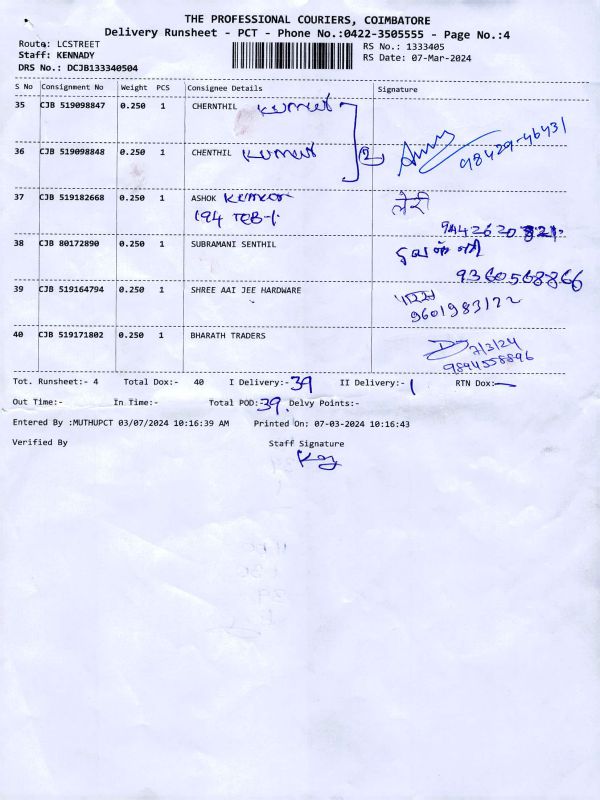 THE PROFESSIONAL COURIERS, COIMBATORE
Delivery Runsheet - PCT - Phone No.:0422-3505555 - Page No.:4
Route: LCSTREET
Staff: KENNADY
DRS No.: DCJB133340504
RS No.: 1333405
RS Date: 07-Mar-2024
S No Consignment No Weight PCS Consignee Details Signature
35 CJB 519098847 0.250 1 CHERNTHIL Kumar
36 CJB 519098848 0.250 1 CHENTHIL Kumar 2 98429-46431
37 CJB 519182668 0.250 1 ASHOK Kumar
194 TCB-1
9442620821
38 CJB 80172890 0.250 1 SUBRAMANI SENTHIL
9360568866
39 CJB 519164794 0.250 1 SHREE AAI JEE HARDWARE
9601983122
40 CJB 519171802 0.250 1 BHARATH TRADERS 7/3/24
9894558896
Tot. Runsheet:- 4 Total Dox:- 40 I Delivery:- 39 II Delivery:- 1 RTN Dox:-
Out Time:- In Time:- Total POD: 39. Delvy Points:-
Entered By :MUTHUPCT 03/07/2024 10:16:39 AM Printed On: 07-03-2024 10:16:43
Verified By Staff Signature